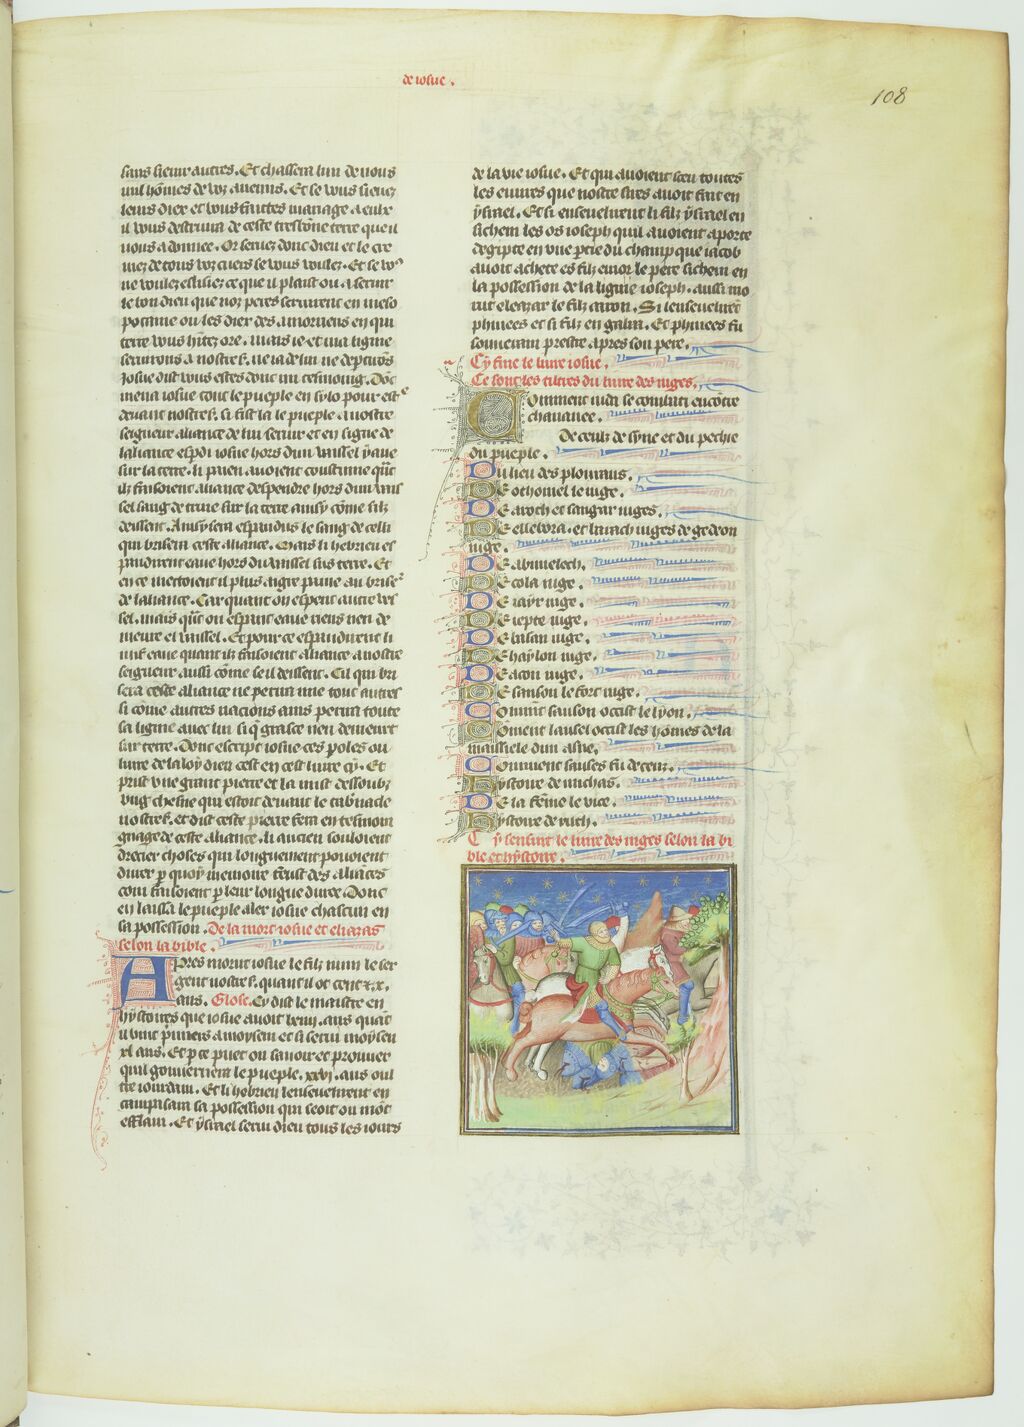 de iosue.
108
sans sieur autres. Et chassera lun de vous
mil hommes de voz anemis. Et se vous sieuez
leurs diex et vous faittes mariage a eulx
il vous destruira de ceste tresbonne terre que il
vous a donnee. Or seruez donc dieu et le cre
mez de tous voz cuers se vous voulez. Et se vo9
ne voulez eslisiez ce que il plaist ou a seruir
le bon dieu que noz peres seruirent en meso
potamie ou les diex des amoriens en qui
terre vous habitez ore. mais ie et ma ligne
seruirons a nostre s. ne ia de lui ne departirons
Iosue dist vous estes donc mi tesmoing. Donc
mena iosue tout le pueple en sylo pour estre
deuant nostre s. si fist la le pueple a nostre
seigneur aliance de lui seruir et en signe de
laliance espandi iosue hors dun vaissel yaue
sur la terre. li paien auoient coustume quant
ilz faisoient aliance despendre hors dun vais
sel sang de truie sur la terre aussy come silz
deissent. Aussy sera espandus le sang de celli
qui brisera ceste aliance. Mais li hebrieu es
pandirent eaue hors du vaissel sus terre. Et
en ce mettoient il plus aigre paine au briser
de laliance. Car quant on espent autre ver
sel. mais quant on espant eaue riens nen de
meure el vaissel. Et pour ce espandirent li
iuif eaue quant ilz faisoient aliance a nostre
seigneur aussi come se il deissent. Cil qui bri
sera ceste aliance ne perira mie tout autresi
si come autres nacions ains perira toute
sa ligne auec lui si que trasce nen demeurt
sur terre. Dont escript iosue ces poles ou
liure de la loy dieu cest en cest liure cy. Et
prist vne grant pierre et la mist dessoubz
vng chesne qui estoit deuant le tabernacle
nostre s. et dist ceste pierre sera en tesmoi
gnage de ceste aliance. li ancien souloient
drecier choses qui longuement pouoient
durer par quoy memoire feust des aliances
com faisoient par leur longue duree. Donc
en laissa le pueple aler iosue chascun en
sa possession. De la mort iosue et eliazar
selon la bible.
Apres morut iosue le filz num le ser
gent nostre s. quant il ot cent et x.
ans. Glose. Cy dist le maistre en
hystoires que iosue auoit ans quant
il vint primers a moysen et si serui moysen
xl ans. Et par ce puet on sauoir et prouuer
quil gouuernient le pueple. xxvi. ans oul
tre iourdain. Et li hebrieu lenseuelirent en
tampnsam sa possession qui seoit ou mont
effraim. Et ysrael serui dieu tous les iours
de la vie iosue. Et qui auoient sceu toutes
les euures que nostre sires auoit fait en
ysrael. Et si enseuelirent li filz ysrael en
sichem les os ioseph quil auoient aporte
degipte en vne partie du champ que iacob
auoit achete es filz emor le pere sichem en
la possession de la lignie ioseph. aussi mo
rut eleazar le filz aaron. Si lenseuelirent
phinees et si filz en gabaa. Et phinees fu
souuerain prestre apres son pere.
Cy fine le liure iosue.
Ce sont les tiltres du liure des iuges.
Comment iuda se combati encontre
chananee.
De ceulz de syne et du pechie
du pueple.
Du lieu des plourans.
De othoniel le iuge.
De aioth et sangar iuges.
De delbora. et barach iuges de gedeon
iuge.
De abimelech.
De tola iuge.
De iayr iuge.
De iepte iuge.
De abasan iuge.
De haylon iuge.
De acon iuge.
De sanson le fort iuge.
Comment sanson occist le lyon.
Coment sansel occist les homes de la
maissiele dun asne.
Comment sanses fu deceuz.
Hystoire de michas.
De la femme le vice.
Hystoire de ruth.
Cy sensuit le liure des iuges selon la bi
ble et hystoire.